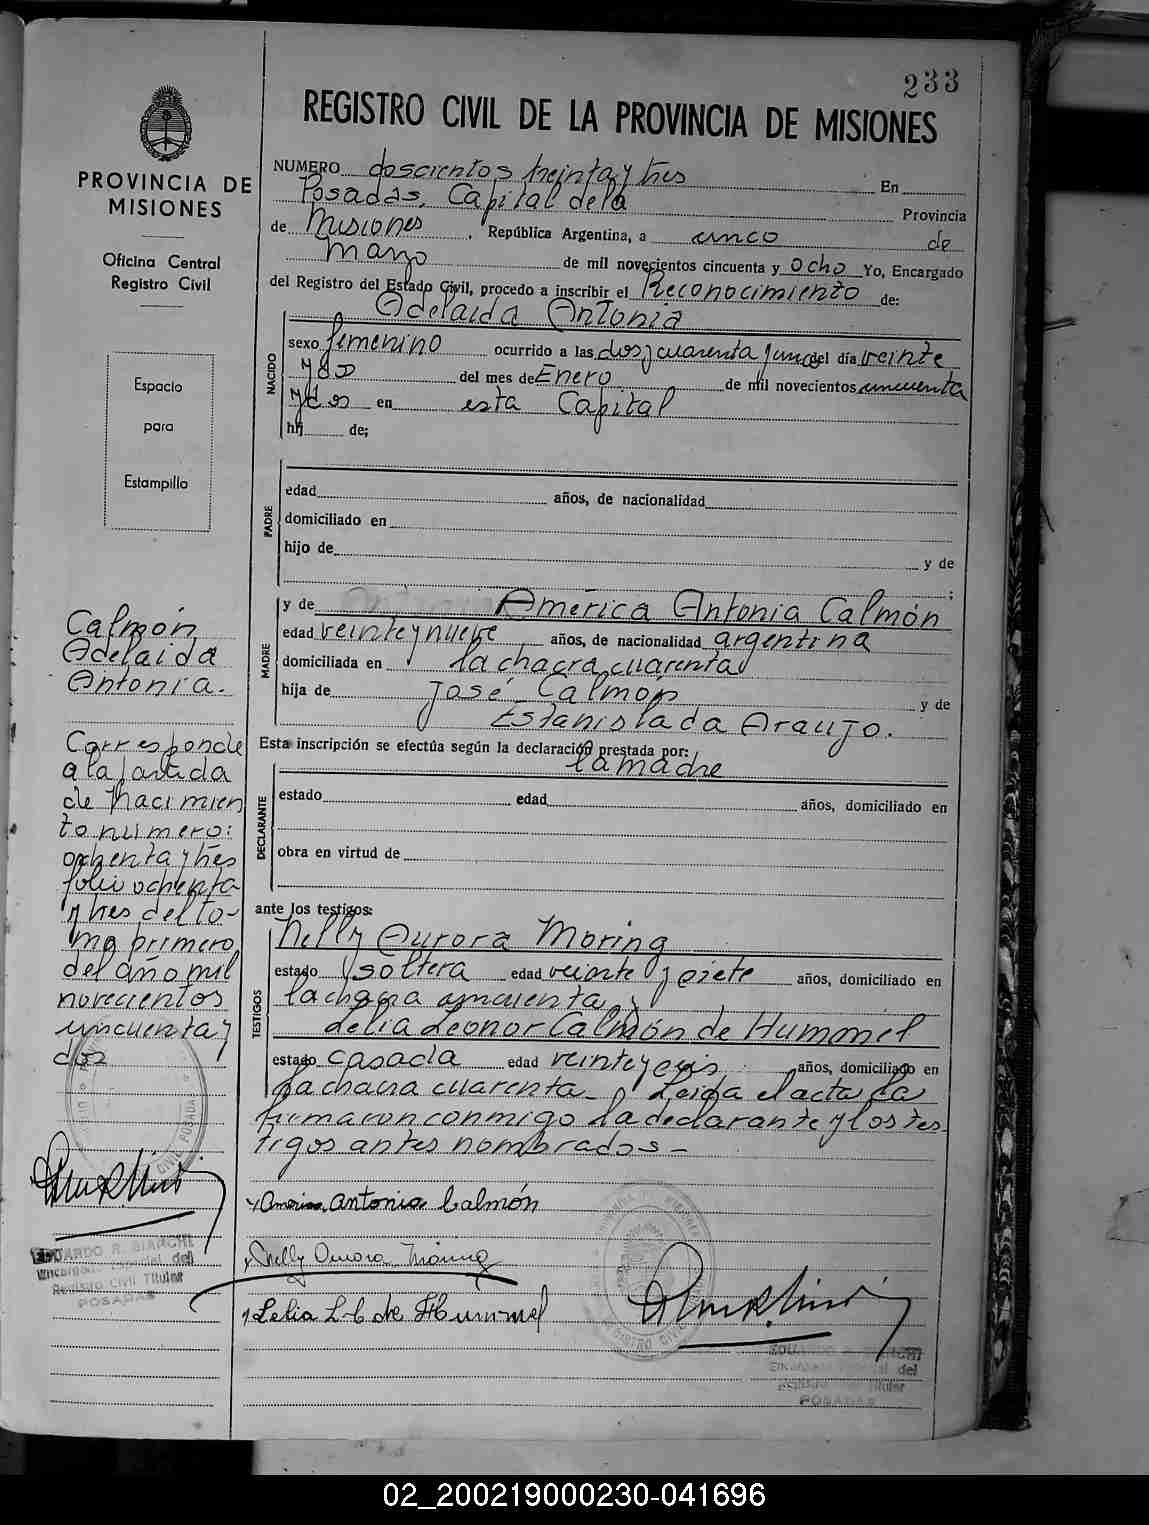 233
REGISTRO CIVIL DE LA PROVINCIA DE MISIONES
PROVINCIA DE
MISIONES
Oficina Central
Registro Civil
Espacio
para
Estampilla
NUMERO doscientos treinta y tres En
Posadas, Capital de la Provincia
de Misiones, República Argentina, a cinco de
Marzo de mil novecientos cincuenta y ocho Yo, Encargado
del Registro del Estado Civil, procedo a inscribir el Reconocimiento de:
Adelaida Antonia
NACIDO
sexo femenino ocurrido a las dos y cuarenta y uno del día veinte
y dos del mes de Enero de mil novecientos cincuenta
y dos en esta Capital
hij de;
PADRE
edad años, de nacionalidad
domiciliado en
hijo de y de
;
MADRE
y de América Antonia Calmón
edad veinte y nueve años, de nacionalidad argentina
domiciliada en la chacra cuarenta
hija de José Calmón y de
Estanislada Araujo.
Esta inscripción se efectúa según la declaración prestada por:
la madre
DECLARANTE
estado edad años, domiciliado en
obra en virtud de
ante los testigos:
TESTIGOS
Nelly Aurora Moring
estado soltera edad veinte y siete años, domiciliado en
la chacra cincuenta y
Lelia Leonor Calmón de Hummel
estado casada edad veinte y seis años, domiciliado en
la chacra cuarenta. Leida el acta la
firmaron conmigo la declarante y los tes-
tigos antes nombrados -
América Antonia Calmón
Nelly Aurora Moring
Lelia L. C. de Hummel
Calmón
Adelaida
Antonia.
Corresponde
a la partida
de Nacimien
to número:
ochenta y tres
folio ochenta
y tres del to-
mo primero
del año mil
novecientos
cincuenta y
dos
EDUARDO R. BIANCHI
Encargado Especial del
Registro Civil Titular
POSADAS
REGISTRO CIVIL
EDUARDO R. BIANCHI
Encargado Especial del
Registro Civil Titular
POSADAS
02_200219000230-041696